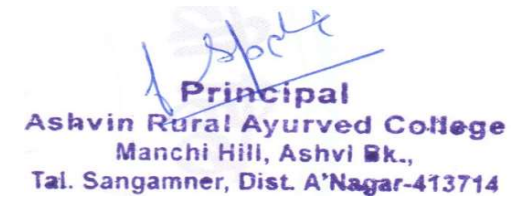 Principal
Ashvin Rural Ayurved College
Manchi Hill, Ashvi Bk.,
Tal. Sangamner, Dist. A'Nagar-413714